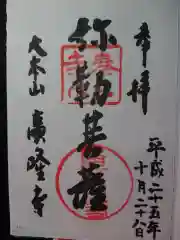 奉拝
平成二十五年
十月二十八日
弥勒菩薩
大本山
廣隆寺